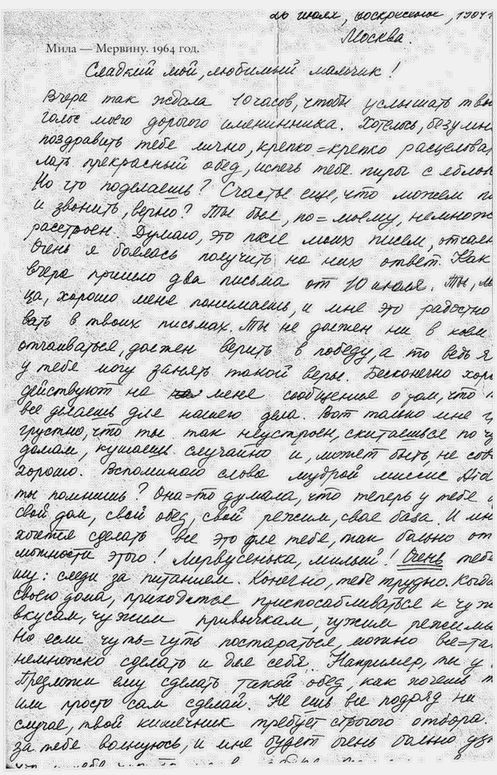 26 июля, воскресенье, 1964
Москва.
Мила — Мервину. 1964 год.
Сладкий мой, любимый мальчик!
Вчера так ждала 10 часов, чтобы услышать
голос моего дорогого именинника. Хотелось, безумно
поздравить тебя лично, крепко=крепко
лать прекрасный обед, испечь тебе пирог с
Но что поделаешь? Счастье еще, что можем
и звонить, верно? Ты был, по=моему,
расстроен. Думаю, это после моих писем,
Очень я боялась получить на них ответ. Как
вчера пришло два письма от 10 июля. Ты,
ца, хорошо меня понимаешь, и мне это радостно
вать в твоих письмах. Ты не должен ни в коем
отчаиваться, должен верить в победу, а то ведь я
у тебя могу занять такой веры. Бесконечно
действуют на меня сообщения о том, что
все делаешь для нашего дела. Вот только мне
грустно, что ты так неустроен, скитаешься по
домам, кушаешь случайно и, может быть, не
хорошо. Вспоминаю слова мудрой миссис
ты помнишь? Она=то думала, что теперь у тебя
свой дом, свой обед, свой режим, своя база. И
хочется сделать все это для тебя, так больно от
можности этого! Мервусенька, милый! Очень
шу: следи за питанием. Конечно, тебе трудно. Когда
своего дома, приходится приспосабливаться к
вкусам, чужим привычкам, чужим
Но если чуть=чуть постараться, можно
немножко сделать и для себя. Например, ты у
Предложи ему сделать такой обед, как хочешь
или просто сам сделай. Не ешь все подряд ни
случае, твой кишечник требует строгого отбора.
за тебя волнуюсь, и мне будет очень больно